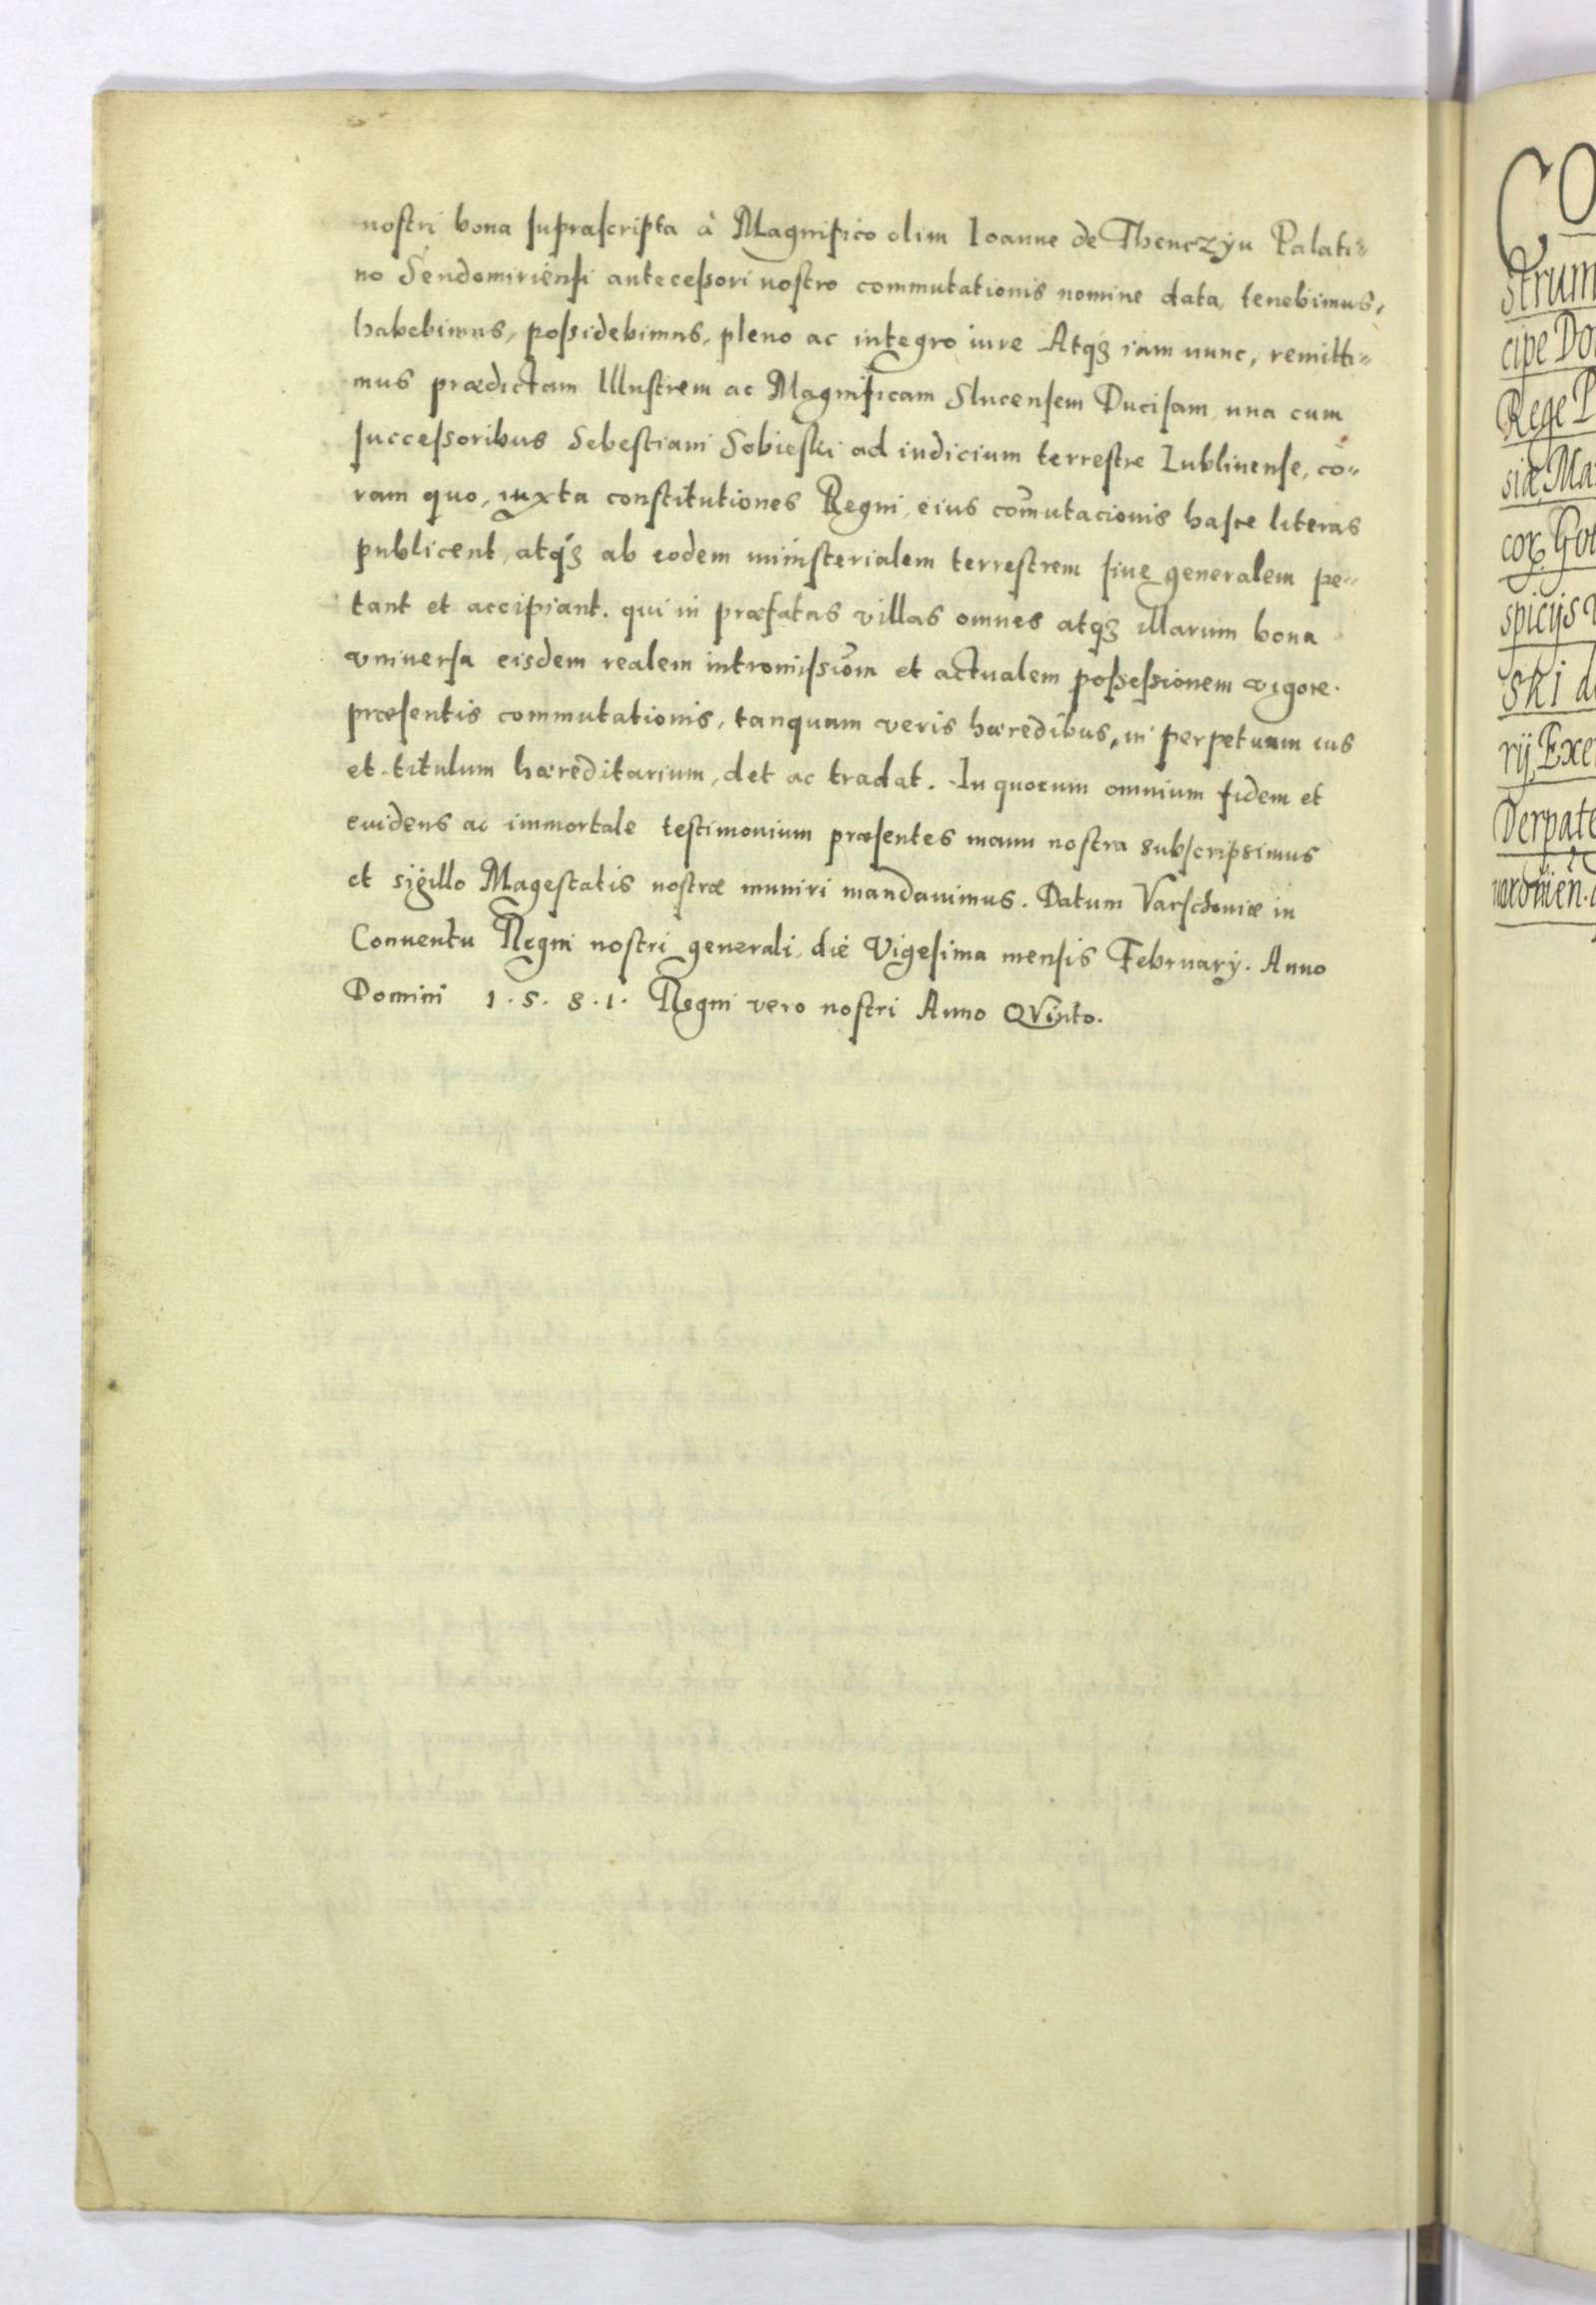 nostri bona suprascripta à Magnifico olim Ioanne de Thenczÿn Palati=
no Sendomiriensi antecessori nostro commutationis nomine data, tenebimus,
habebimus, possidebimus, pleno ac integro iure Atqȝ iam nunc, remitti=
mus prædictam Illustrem ac Magnificam Slucensem Ducisam, una cum
successoribus Sebestiani Sobieski ad iudicium terrestre Lublinense, co=
ram quo, iuxta constitutiones Regni, eius com̄utacionis hasce literas
publicent, atqȝ ab eodem ministerialem terrestrem siue generalem pe=
tant et accipiant. qui in præfatas villas omnes atqȝ illarum bona
vniuersa eisdem realem intromissiōm et actualem possessionem vigore.
præsentis commutationis, tanquam veris hæredibus, in perpetuum ius
et titulum hæreditarium, det ac tradat. In quorum omnium fidem et
euidens ac immortale testimonium præsentes manu nostra subscripsimus
et sigillo Magestatis nostræ muniri mandauimus. Datum Varschouiæ in
Conuentu Regni nostri generali, die Vigesima mensis Februarÿ. Anno
Domini 1.5.8.1. Regni vero nostri Anno QVinto.
CO
strum
cipe Do
Rege P
siæ, Ma
spicijs
ski d
rij, Exe
Derpate